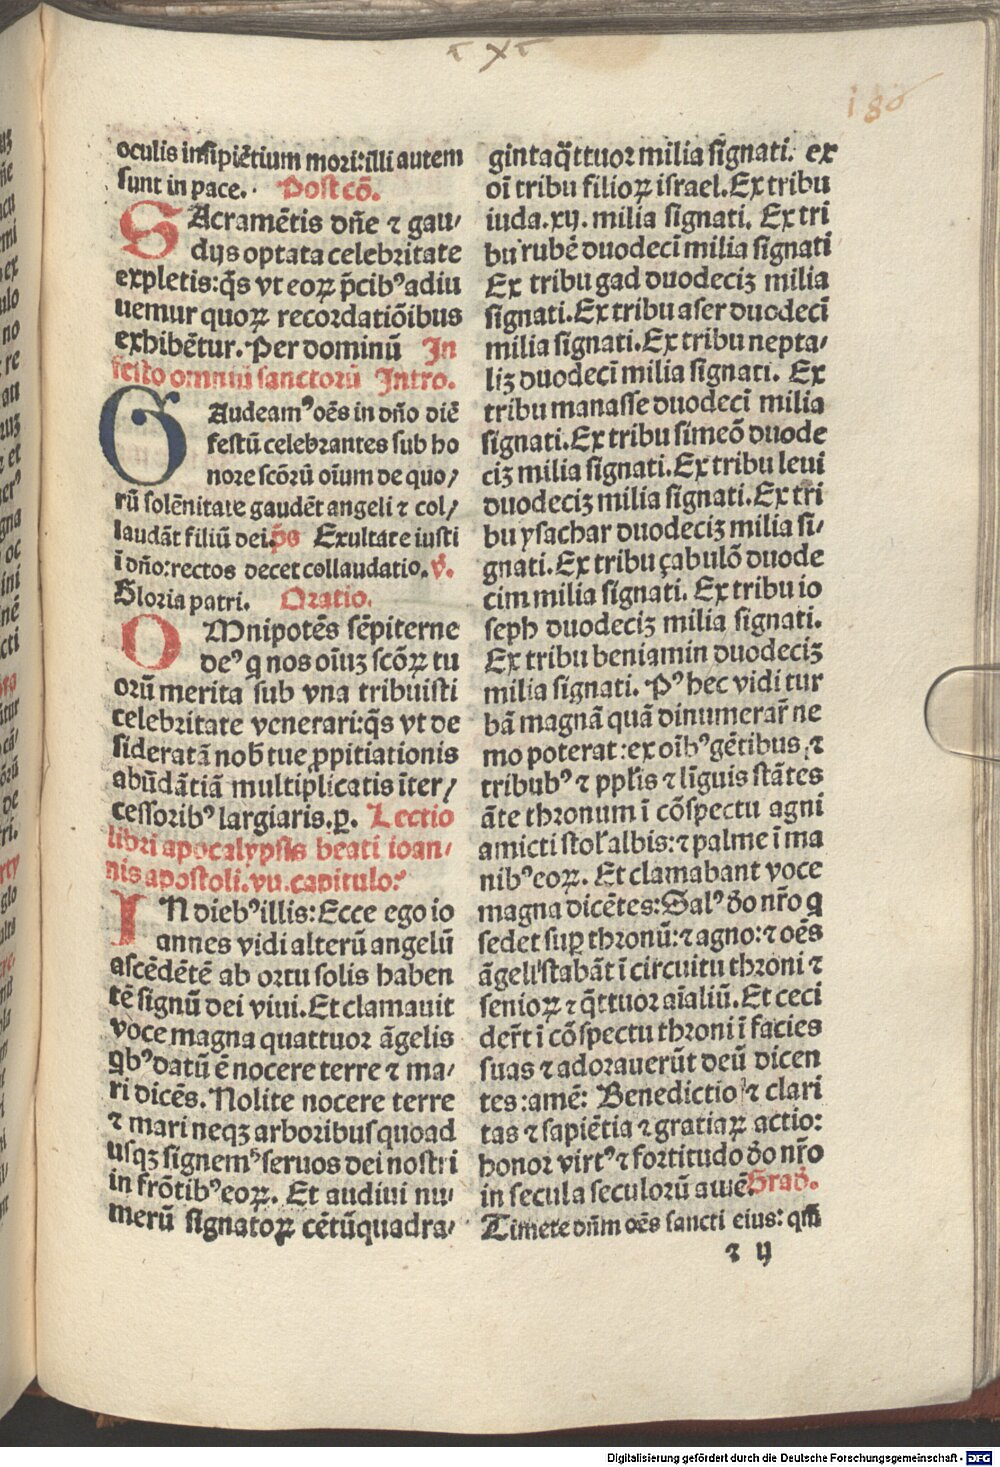 186
oculis insipiētium mori:illi autem
sunt in pace.· Postcō.
SAcramētis dn̄e ⁊ gau/
dijs optata celebritate
expletis:q̄s vt eoꝝ p̄cibꝰ adiu
uemur quoꝝ recordatiōibus
exhibētur. Per dominū In
festo omniū sanctorū Intro.
GAudeamꝰ oēs in dn̄o diē
festū celebrantes sub ho
nore scōrū oīum de quo/
rū solēnitate gaudēt angeli ⁊ col/
laudāt filiū dei. p̄s Exultate iusti
ī dn̄o:rectos decet collaudatio. v̄.
Gloria patri. Oratio.
OMnipotēs sēpiterne
deꝰ q nos oīuꝫ scōꝝ tu
orū merita sub vna tribuisti
celebritate venerari:q̄s vt de
sideratā nob̄ tue ꝓpitiationis
abūdātiā multiplicatis īter/
cessoribꝰ largiaris.p. Lectio
libri apocalypsis beati ioan/
nis apostoli.vij.capitulo.
IN diebꝰ illis: Ecce ego io
annes vidi alterū angelū
ascēdētē ab ortu solis haben
tē signū dei viui. Et clamauit
voce magna quattuor āgelis
qbꝰ datū ē nocere terre ⁊ ma/
ri dicēs. Nolite nocere terre
⁊ mari neqꝫ arboribus quoad
usqꝫ signemꝰ seruos dei nostri
in frōtibꝰ eoꝝ. Et audiui nu/
merū signatoꝝ cētūquadra/
ginta q̄ttuor milia signati. ex
oī tribu filioꝝ israel. Ex tribu
iuda.xij. milia signati. Ex tri
bu rubē duodecī milia signati
Ex tribu gad duodeciꝫ milia
signati. Ex tribu aser duodecī
milia signati. Ex tribu nepta/
liꝫ duodecī milia signati. Ex
tribu manasse duodecī milia
signati. Ex tribu simeō duode
ciꝫ milia signati. Ex tribu leui
duodeciꝫ milia signati. Ex tri
bu ysachar duodeciꝫ milia si/
gnati. Ex tribu çabulō duode
cim milia signati. Ex tribu io
seph duodeciꝫ milia signati.
Ex tribu beniamin duodeciꝫ
milia signati. Pꝰ hec vidi tur
bā magnā quā dinumerar̄ ne
mo poterat:ex oīb̄ꝰ gētibus ⁊
tribubꝰ ⁊ ppl̄is ⁊ līguis stātes
āte thronum ī cōspectu agni
amicti stol̄ albis:⁊ palme ī ma
nibꝰ eoꝝ. Et clamabant voce
magna dicētes: Salꝰ d̄o nr̄o q
sedet suꝑ thronū:⁊ agno:⁊ oēs
āgeli stabāt ī circuitu throni ⁊
senioꝝ ⁊ q̄ttuor aīaliū. Et ceci
der̄t ī cōspectu throni ī facies
suas ⁊ adorauerūt deū dicen
tes:amē: Benedictio ⁊ clari
tas ⁊ sapiētia ⁊ gratiaꝝ actio:
honor virtꝰ ⁊ fortitudo d̄o nr̄o
in secula seculorū amē. Grad̄.
Timete dn̄m oēs sancti eius: qm̄
⁊ ij
Digitalisierung gefördert durch die Deutsche Forschungsgemeinschaft - DFG